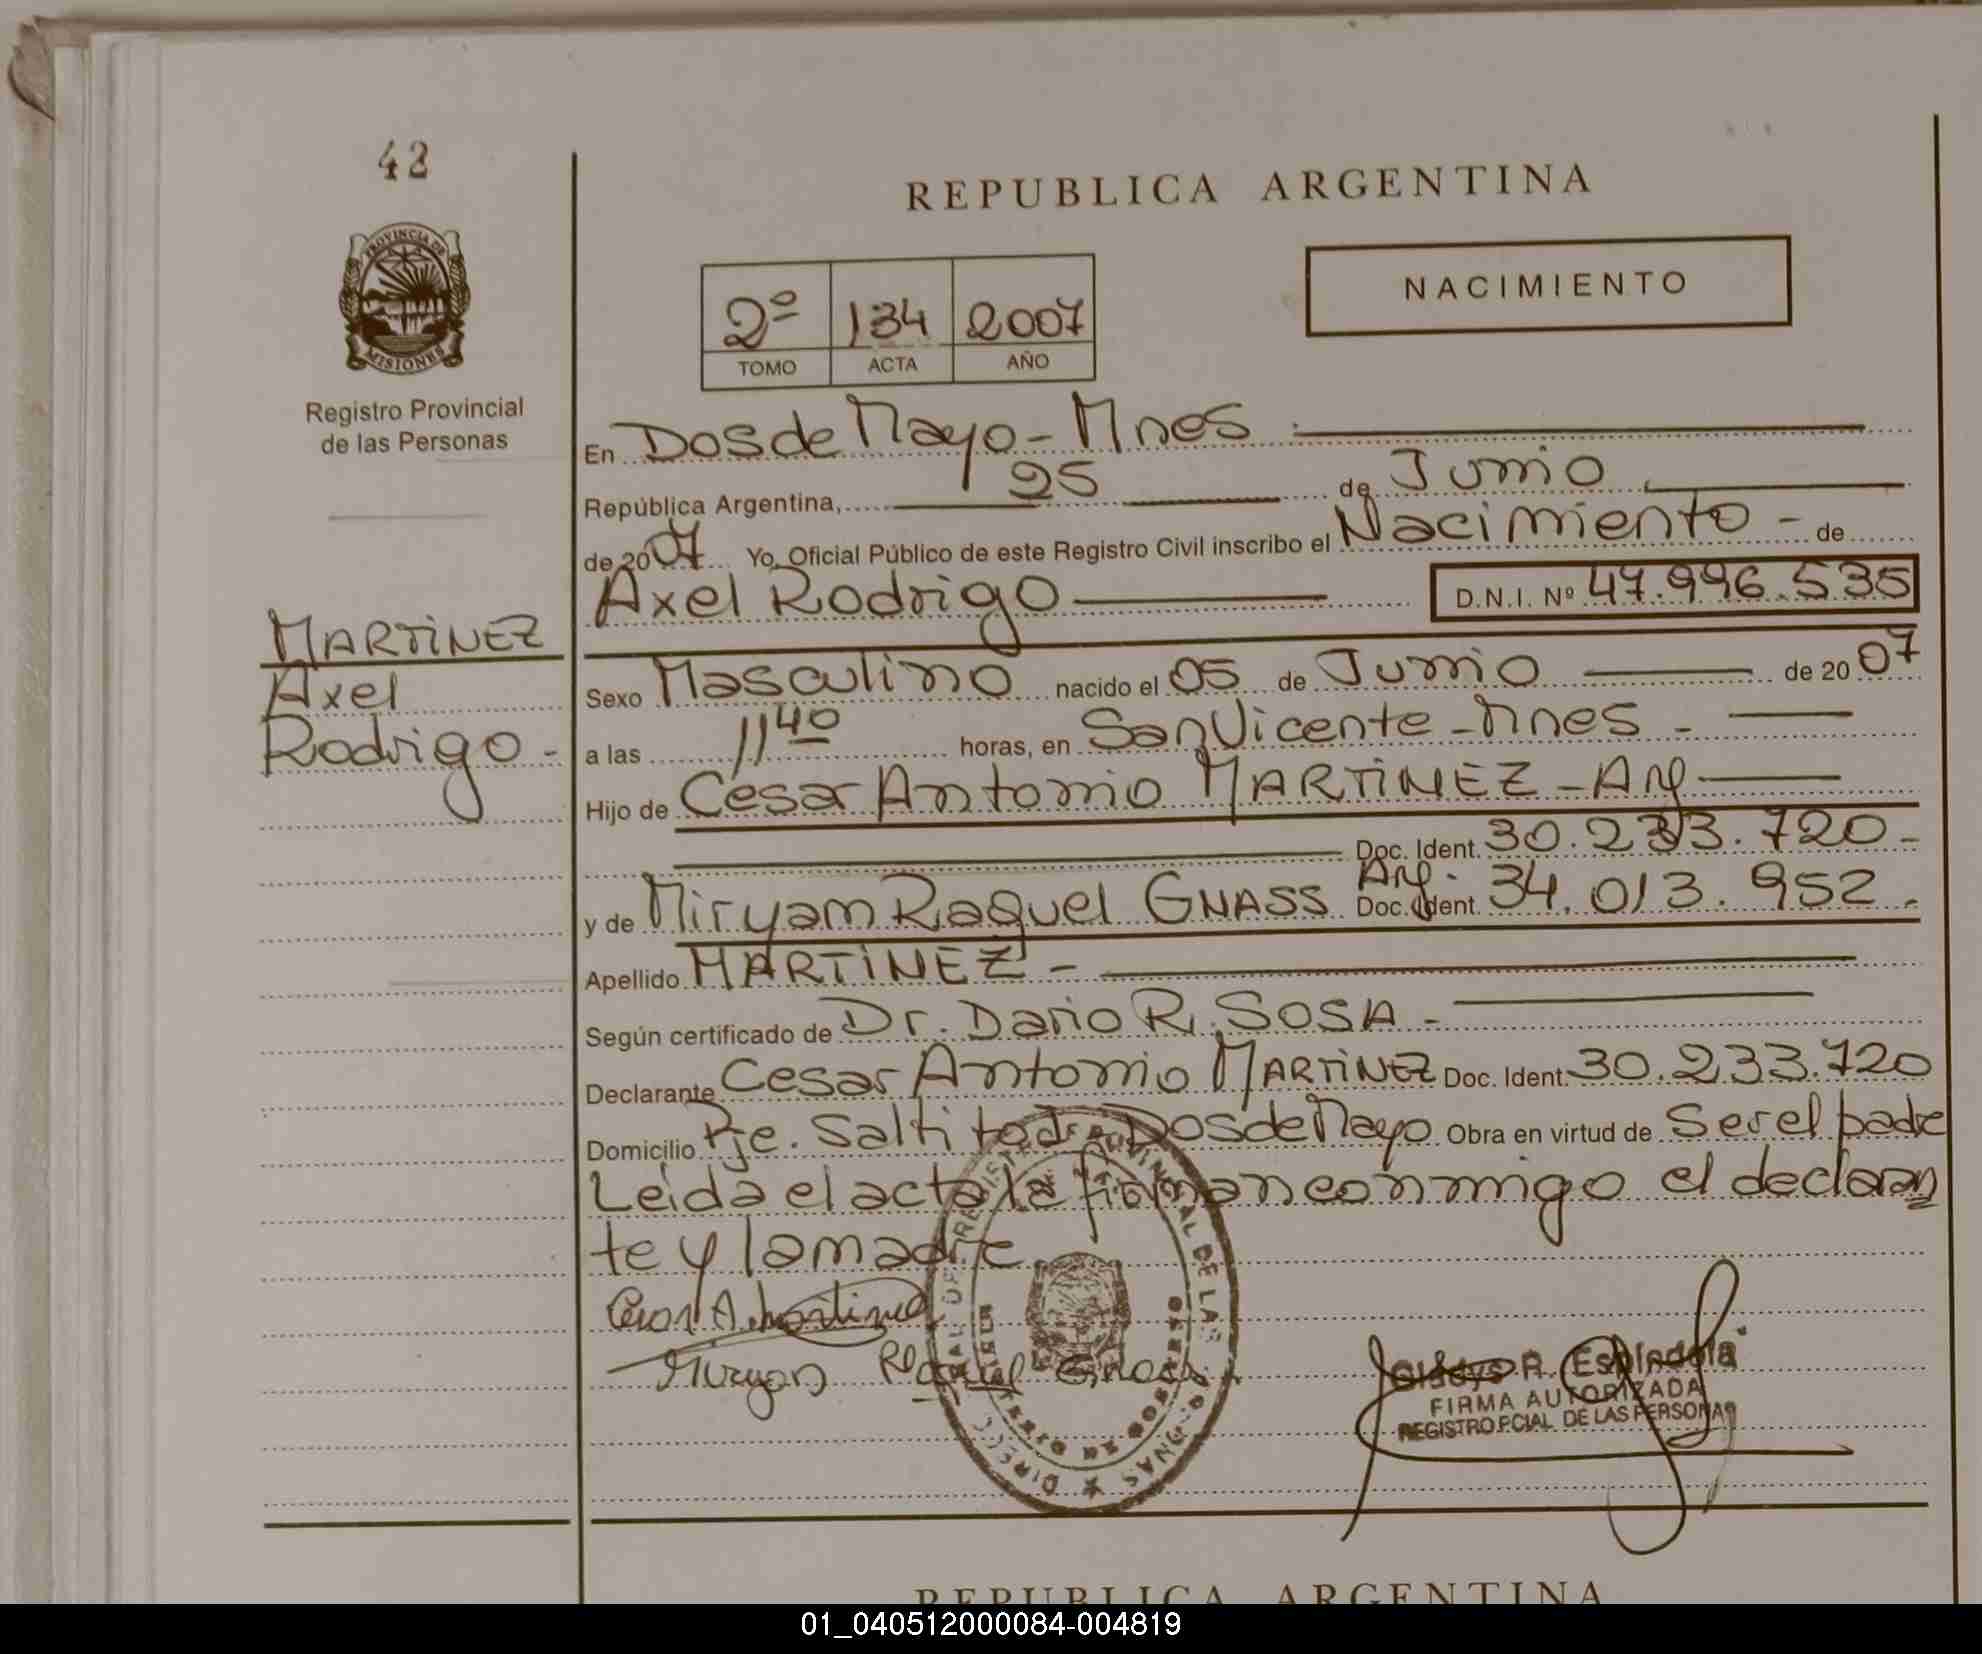 42
REPUBLICA ARGENTINA
PROVINCIA DE
MISIONES
Registro Provincial
de las Personas
NACIMIENTO
2º 134 2007
TOMO ACTA AÑO
En Dos de Mayo - Mnes
República Argentina, 25 de Junio
de 2007 Yo, Oficial Público de este Registro Civil inscribo el Nacimiento - de
Axel Rodrigo D.N.I. Nº 47.996.535
MARTINEZ
Axel
Rodrigo -
Sexo Masculino nacido el 05 de Junio de 2007
a las 11 40 horas, en San Vicente - Mnes -
Hijo de Cesar Antonio MARTINEZ - Arg
Doc. Ident. 30.233.720 -
y de Miryam Raquel GNASS Arg. Doc. Ident. 34.013.952 .
Apellido MARTINEZ -
Según certificado de Dr. Dario R. SOSA -
Declarante Cesar Antonio MARTINEZ Doc. Ident. 30.233.720
Domicilio Pje. Saltito Dos de Mayo Obra en virtud de Ser el padre
Leida el acta la firman conmigo el declaran
te y la madre
Cesar A. Martinez
Miryan Raquel Gnass
Gladys R. Espindola
FIRMA AUTORIZADA
REGISTRO PCIAL DE LAS PERSONAS
REPUBLICA ARGENTINA
01_040512000084-004819